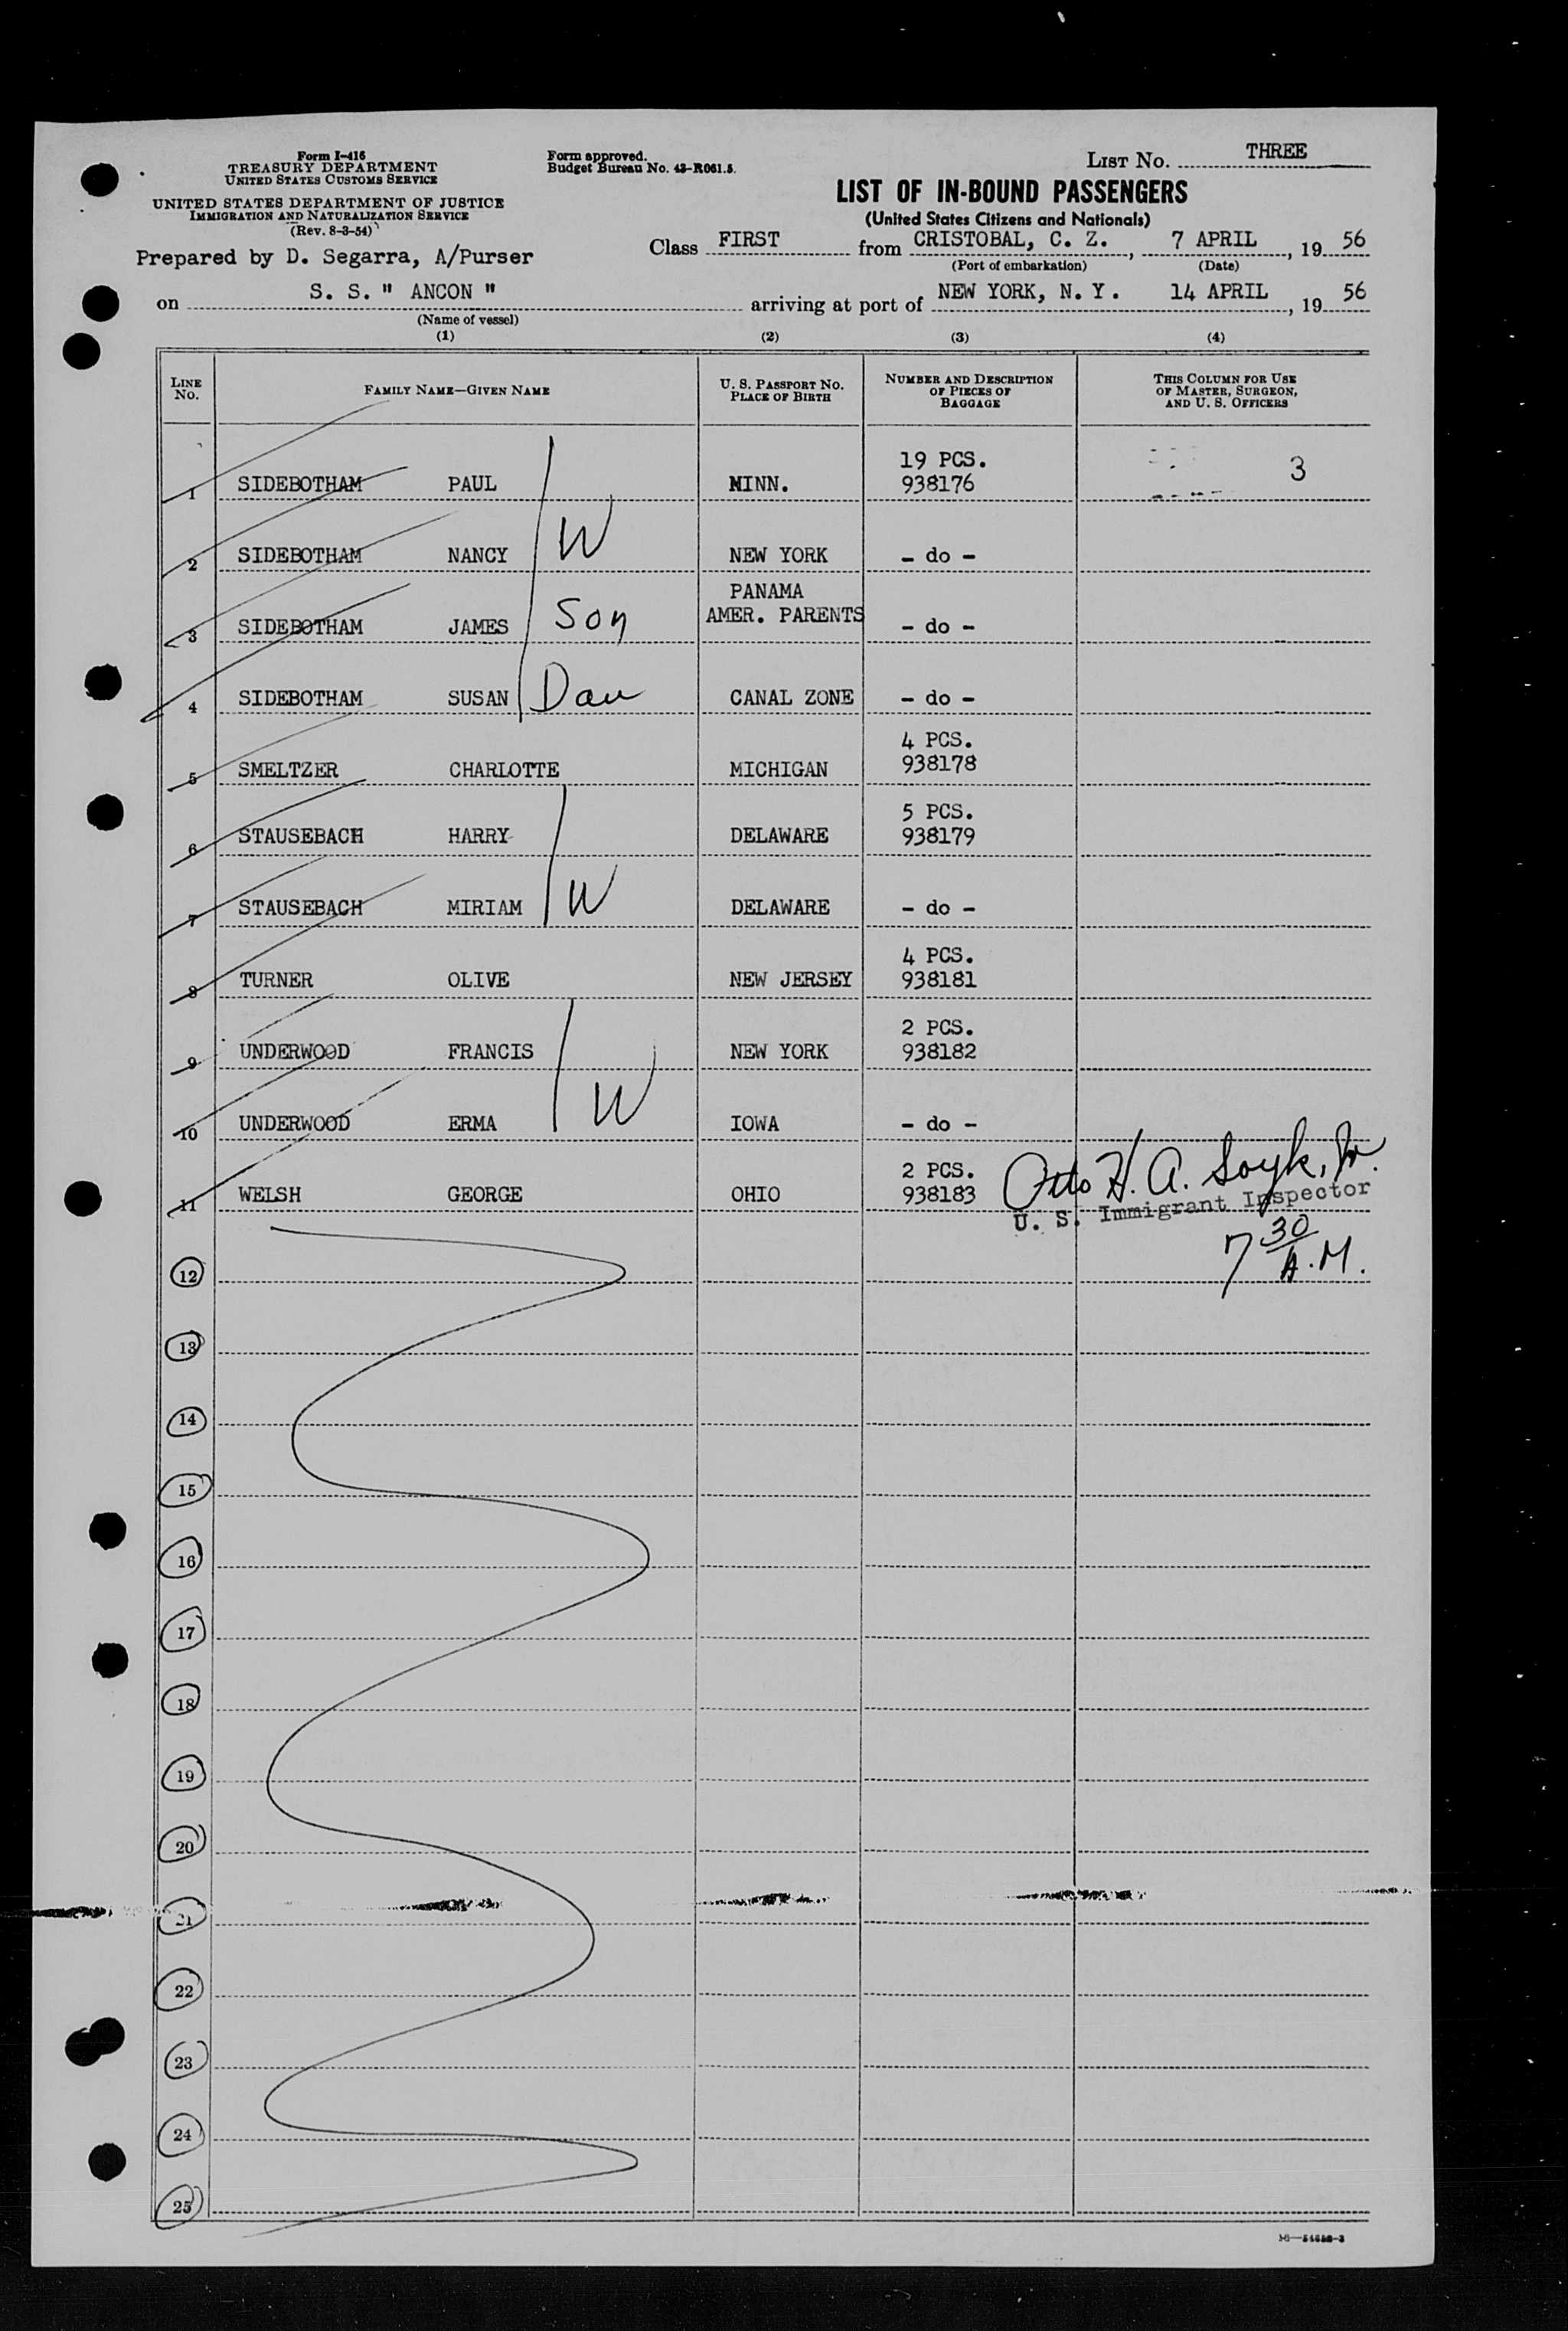 Form I-416
TREASURY DEPARTMENT
UNITED STATES CUSTOMS SERVICE
UNITED STATES DEPARTMENT OF JUSTICE
IMMIGRATION AND NATURALIZATION SERVICE
(Rev. 8-3-54)
Form approved.
Budget Bureau No. 43-R061.5.
LIST NO. THREE
LIST OF IN-BOUND PASSENGERS
(United States Citizens and Nationals)
Prepared by D. Segarra, A/Purser
Class FIRST from CRISTOBAL, C. Z., 7 APRIL, 19 56
(Port of embarkation) (Date)
on S. S. " ANCON " arriving at port of NEW YORK, N. Y. 14 APRIL, 19 56
(Name of vessel)
(1) (2) (3) (4)
LINE NO. FAMILY NAME—GIVEN NAME U. S. PASSPORT NO. PLACE OF BIRTH NUMBER AND DESCRIPTION OF PIECES OF BAGGAGE THIS COLUMN FOR USE OF MASTER, SURGEON, AND U. S. OFFICERS
19 PCS.
1 SIDEBOTHAM PAUL MINN. 938176 3
2 SIDEBOTHAM NANCY W NEW YORK - do -
PANAMA
3 SIDEBOTHAM JAMES Son AMER. PARENTS - do -
4 SIDEBOTHAM SUSAN Dau CANAL ZONE - do -
4 PCS.
5 SMELTZER CHARLOTTE MICHIGAN 938178
5 PCS.
6 STAUSEBACH HARRY DELAWARE 938179
7 STAUSEBACH MIRIAM W DELAWARE - do -
4 PCS.
8 TURNER OLIVE NEW JERSEY 938181
2 PCS.
9 UNDERWOOD FRANCIS NEW YORK 938182
10 UNDERWOOD ERMA W IOWA - do -
2 PCS.
11 WELSH GEORGE OHIO 938183
Otto H. A. Soyk, Jr.
U. S. Immigrant Inspector
7 30 A.M.
12
13
14
15
16
17
18
19
20
21
22
23
24
25